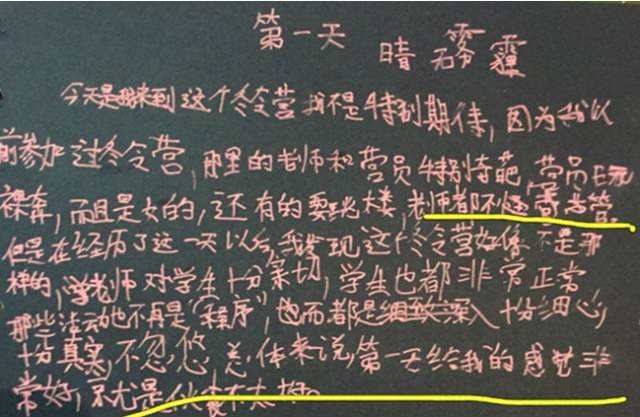 第一天 晴 雾霾
今天是我来到这个冬令营我不是特别期待,因为我以
前参加过冬令营,那里的老师和营员特别奇葩,营员
裸奔,而且是女的,还有的要跳楼,老师都不怪管
但是在经历了这一天以后,我发现这个冬令营好像不是那
样的,老师对学生十分亲切,学生也都非常正常
那些活动也不再是“程序”,而都是细致深入十分细心,
十分真实,不忽悠 总体来说,第一天给我的感觉非
常好,就是伙食不太好。